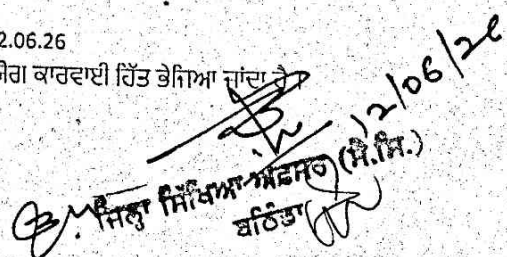 2.06.26
ਯੋਗ ਕਾਰਵਾਈ ਹਿੱਤ ਭੇਜਿਆ ਜਾਂਦਾ ਹੈ।
12/06/26
ਜਿਲ੍ਹਾ ਸਿੱਖਿਆ ਅਫ਼ਸਰ (ਸੈ.ਸਿ.)
ਬਠਿੰਡਾ